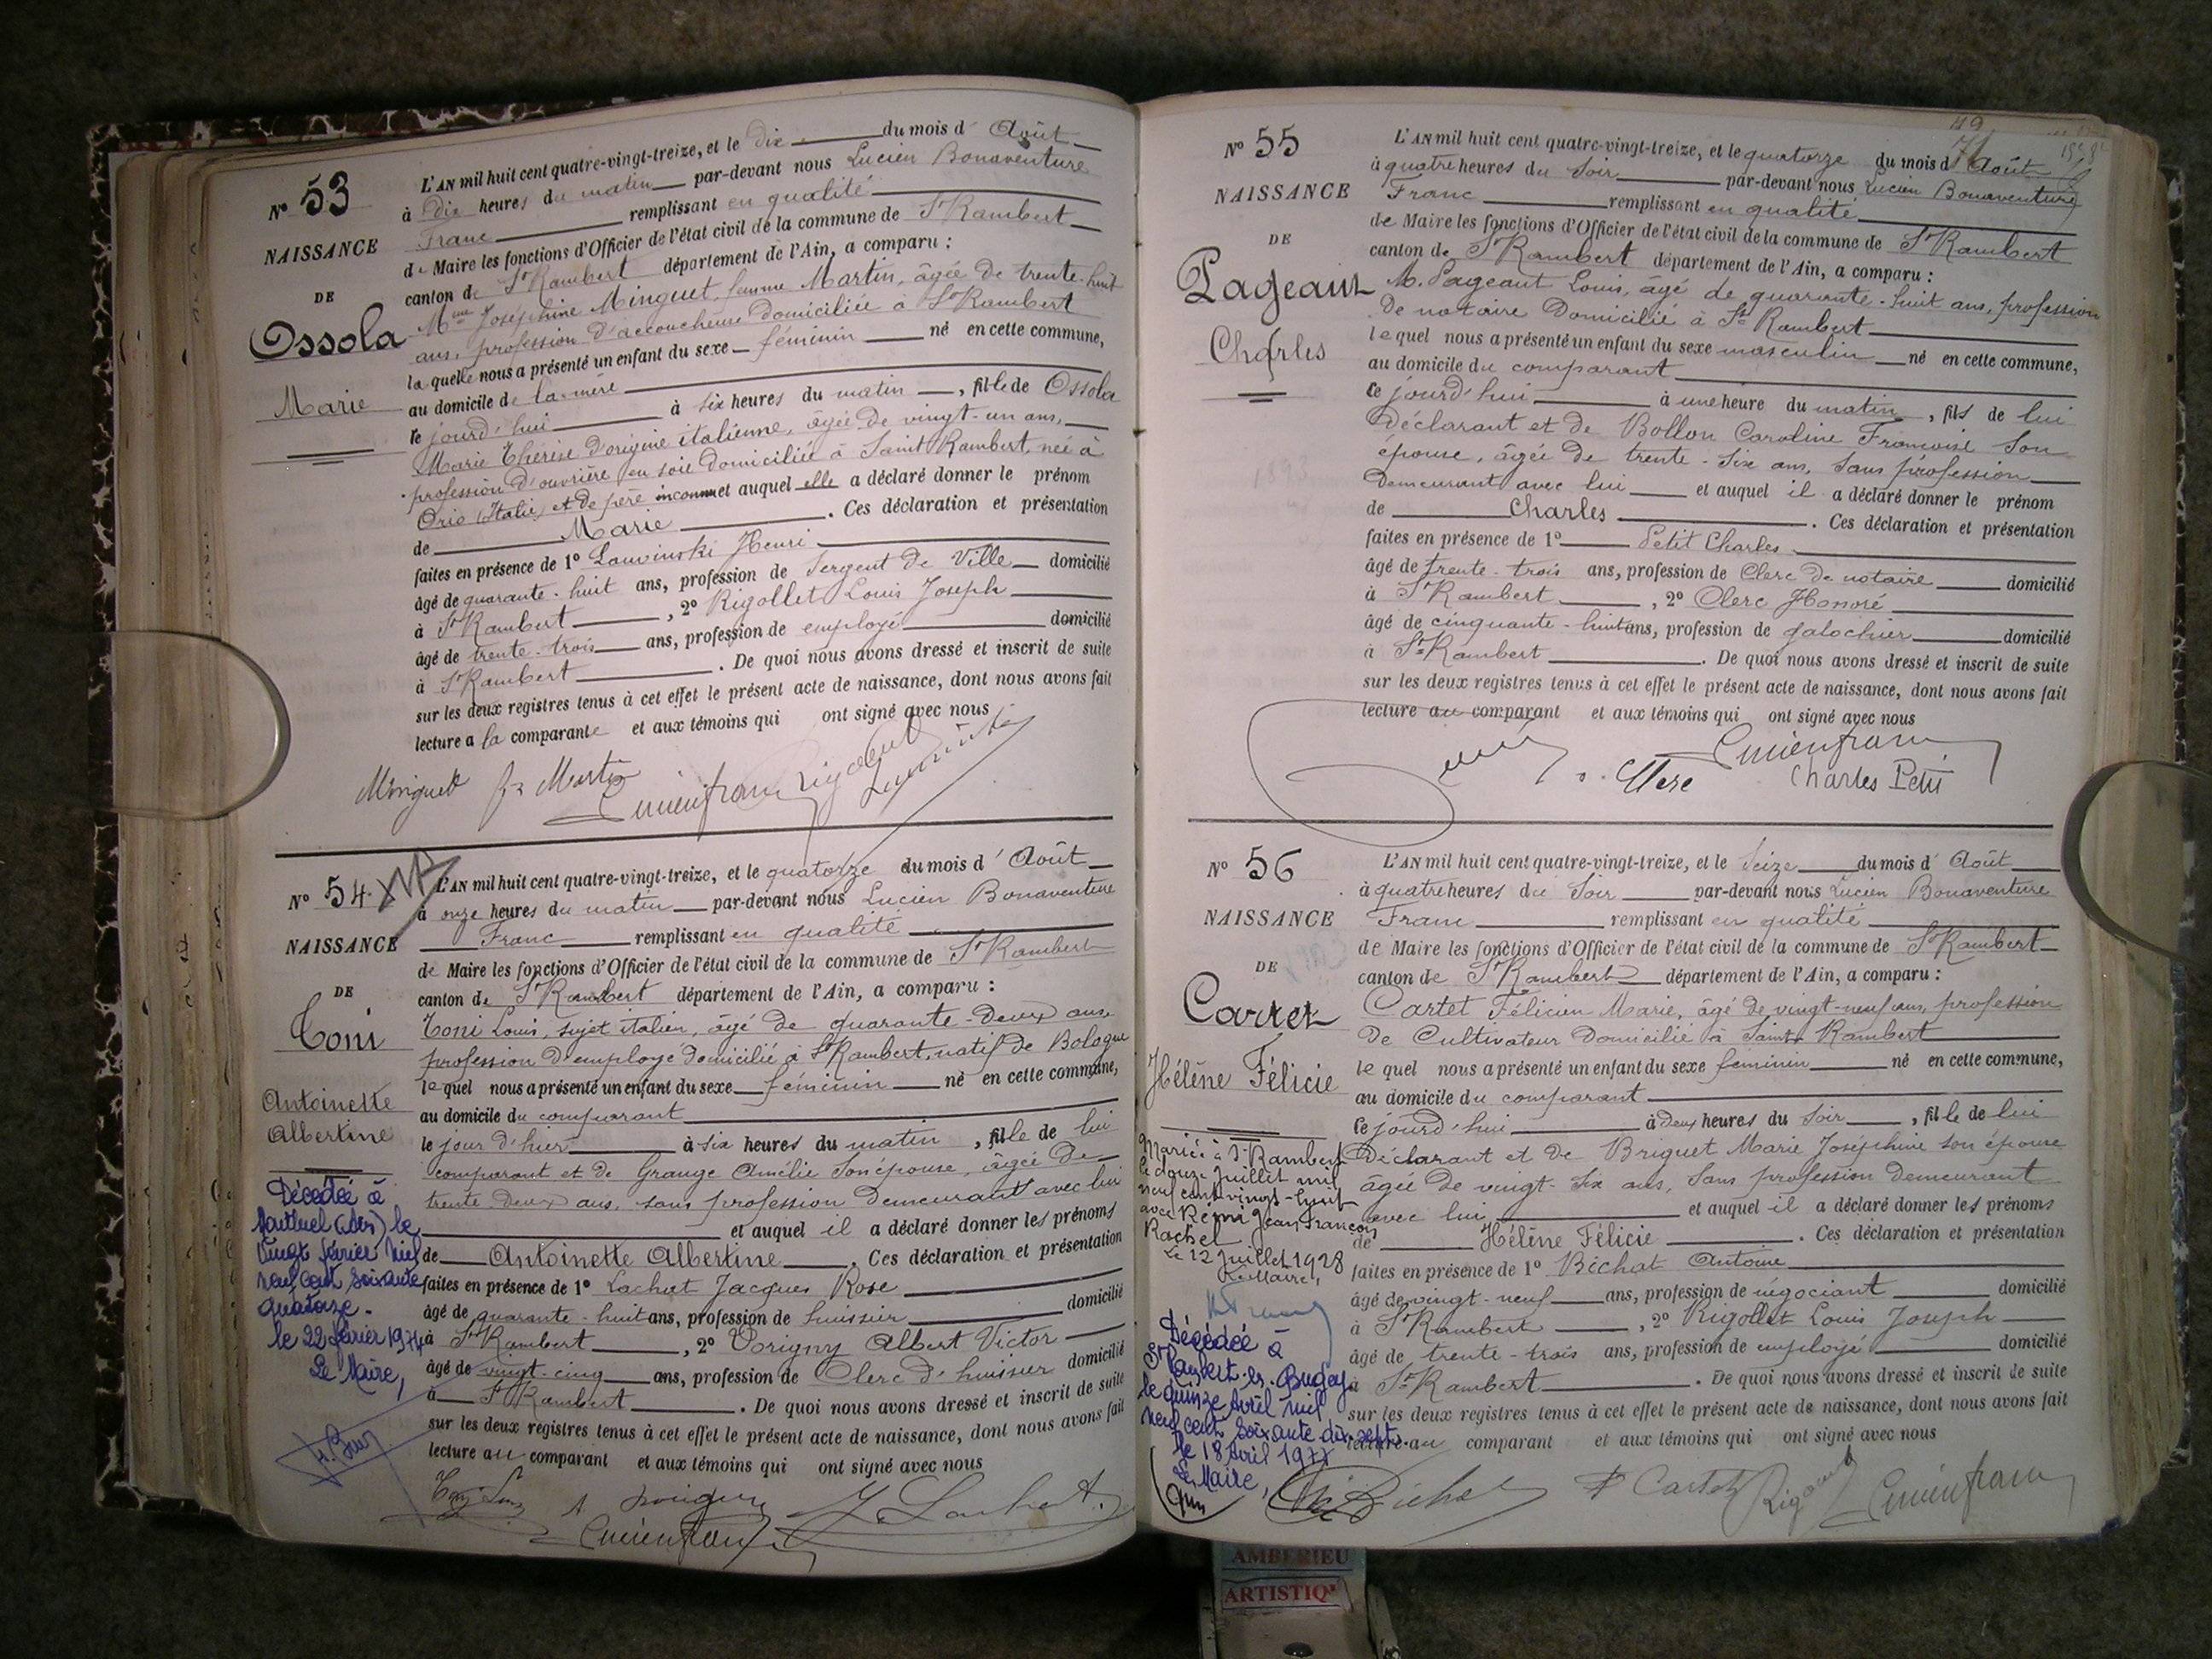 Nº 53
NAISSANCE
DE
Ossola
Marie
L'AN mil huit cent quatre-vingt-treize, et le dix du mois d' Août
à dix heures du matin par-devant nous Lucien Bonaventure
Franc remplissant en qualité
de Maire les fonctions d'Officier de l'état civil de la commune de St Rambert
canton de St Rambert département de l'Ain, a comparu :
Mme Joséphine Minguet, femme Martin, âgée de trente-huit
ans, profession d'accoucheuse domiciliée à St Rambert
laquelle nous a présenté un enfant du sexe féminin né en cette commune,
au domicile de la mère
le jourd'hui à six heures du matin, fille de Ossola
Marie Thérèse d'origine italienne, âgée de vingt-un ans,
profession d'ouvrière en soie domiciliée à Saint Rambert, née à
Orio (Italie) et de père inconnu et auquel elle a déclaré donner le prénom
de Marie. Ces déclaration et présentation
faites en présence de 1º Lawinski Henri
âgé de quarante-huit ans, profession de Sergent de Ville domicilié
à St Rambert, 2º Rigollet Louis Joseph
âgé de trente-trois ans, profession de employé domicilié
à St Rambert. De quoi nous avons dressé et inscrit de suite
sur les deux registres tenus à cet effet le présent acte de naissance, dont nous avons fait
lecture a la comparante et aux témoins qui ont signé avec nous
Minguet fe Martin
Lucienfranc Rigollet
Nº 54
NAISSANCE
DE
Toni
Antoinette
Albertine
L'AN mil huit cent quatre-vingt-treize, et le quatorze du mois d' Août
à onze heures du matin par-devant nous Lucien Bonaventure
Franc remplissant en qualité
de Maire les fonctions d'Officier de l'état civil de la commune de St Rambert
canton de St Rambert département de l'Ain, a comparu :
Toni Louis, sujet italien, âgé de quarante-deux ans,
profession d'employé domicilié à St Rambert, natif de Bologne
lequel nous a présenté un enfant du sexe féminin né en cette commune,
au domicile du comparant
le jour d'hier à six heures du matin, fille de lui
comparant et de Grange Amélie son épouse, âgée de
trente deux ans, sans profession demeurant avec lui
et auquel il a déclaré donner les prénoms
de Antoinette Albertine. Ces déclaration et présentation
faites en présence de 1º Lachut Jacques Rose
âgé de quarante-huit ans, profession de huissier domicilié
à St Rambert, 2º Porigny Albert Victor
âgé de vingt-cinq ans, profession de Clerc d'huissier domicilié
à St Rambert. De quoi nous avons dressé et inscrit de suite
sur les deux registres tenus à cet effet le présent acte de naissance, dont nous avons fait
lecture au comparant et aux témoins qui ont signé avec nous
Lucienfranc
Décédée à
Montluel (Ain) le
vingt février mil
neuf cent soixante
quatorze.
le 22 février 1974
Le Maire,
Nº 55
NAISSANCE
DE
Pageaut
Charles
L'AN mil huit cent quatre-vingt-treize, et le quatorze du mois d' Août
à quatre heures du soir par-devant nous Lucien Bonaventure
Franc remplissant en qualité
de Maire les fonctions d'Officier de l'état civil de la commune de St Rambert
canton de St Rambert département de l'Ain, a comparu :
M. Pageaut Louis, âgé de quarante-huit ans, profession
de notaire domicilié à St Rambert
lequel nous a présenté un enfant du sexe masculin né en cette commune,
au domicile du comparant
ce jourd'hui à une heure du matin, fils de lui
déclarant et de Bollon Caroline Francoise son
épouse, âgée de trente-six ans, sans profession
demeurant avec lui et auquel il a déclaré donner le prénom
de Charles. Ces déclaration et présentation
faites en présence de 1º Petit Charles
âgé de trente-trois ans, profession de Clerc de notaire domicilié
à St Rambert, 2º Clerc Honoré
âgé de cinquante-huit ans, profession de galochier domicilié
à St Rambert. De quoi nous avons dressé et inscrit de suite
sur les deux registres tenus à cet effet le présent acte de naissance, dont nous avons fait
lecture au comparant et aux témoins qui ont signé avec nous
Lucienfranc
Charles Petit
Nº 56
NAISSANCE
DE
Cartet
Hélène Félicie
L'AN mil huit cent quatre-vingt-treize, et le seize du mois d' Août
à quatre heures du soir par-devant nous Lucien Bonaventure
Franc remplissant en qualité
de Maire les fonctions d'Officier de l'état civil de la commune de St Rambert
canton de St Rambert département de l'Ain, a comparu :
Cartet Félicien Marie, âgé de vingt-neuf ans, profession
de Cultivateur domicilié à Saint Rambert
lequel nous a présenté un enfant du sexe feminin né en cette commune,
au domicile du comparant
ce jourd'hui à deux heures du soir, fille de lui
déclarant et de Briguet Marie Joséphine son épouse
âgée de vingt-six ans, sans profession demeurant
avec lui et auquel il a déclaré donner les prénoms
de Hélène Félicie. Ces déclaration et présentation
faites en présence de 1º Béchat Antoine
âgé de vingt-neuf ans, profession de négociant domicilié
à St Rambert, 2º Rigollet Louis Joseph
âgé de trente-trois ans, profession de employé domicilié
à St Rambert. De quoi nous avons dressé et inscrit de suite
sur les deux registres tenus à cet effet le présent acte de naissance, dont nous avons fait
lecture au comparant et aux témoins qui ont signé avec nous
F Cartet Rigollet Lucienfranc
Mariée à St Rambert
le douze juillet mil
neuf cent vingt-huit
avec Rémi Jean François
Rachel
Le 12 Juillet 1928
Le Maire,
Décédée à
St Rambert-en-Bugey
le quinze Avril mil
neuf cent soixante dix-sept.
le 18 Avril 1977
Le Maire,
AMBERIEU
ARTISTIQ